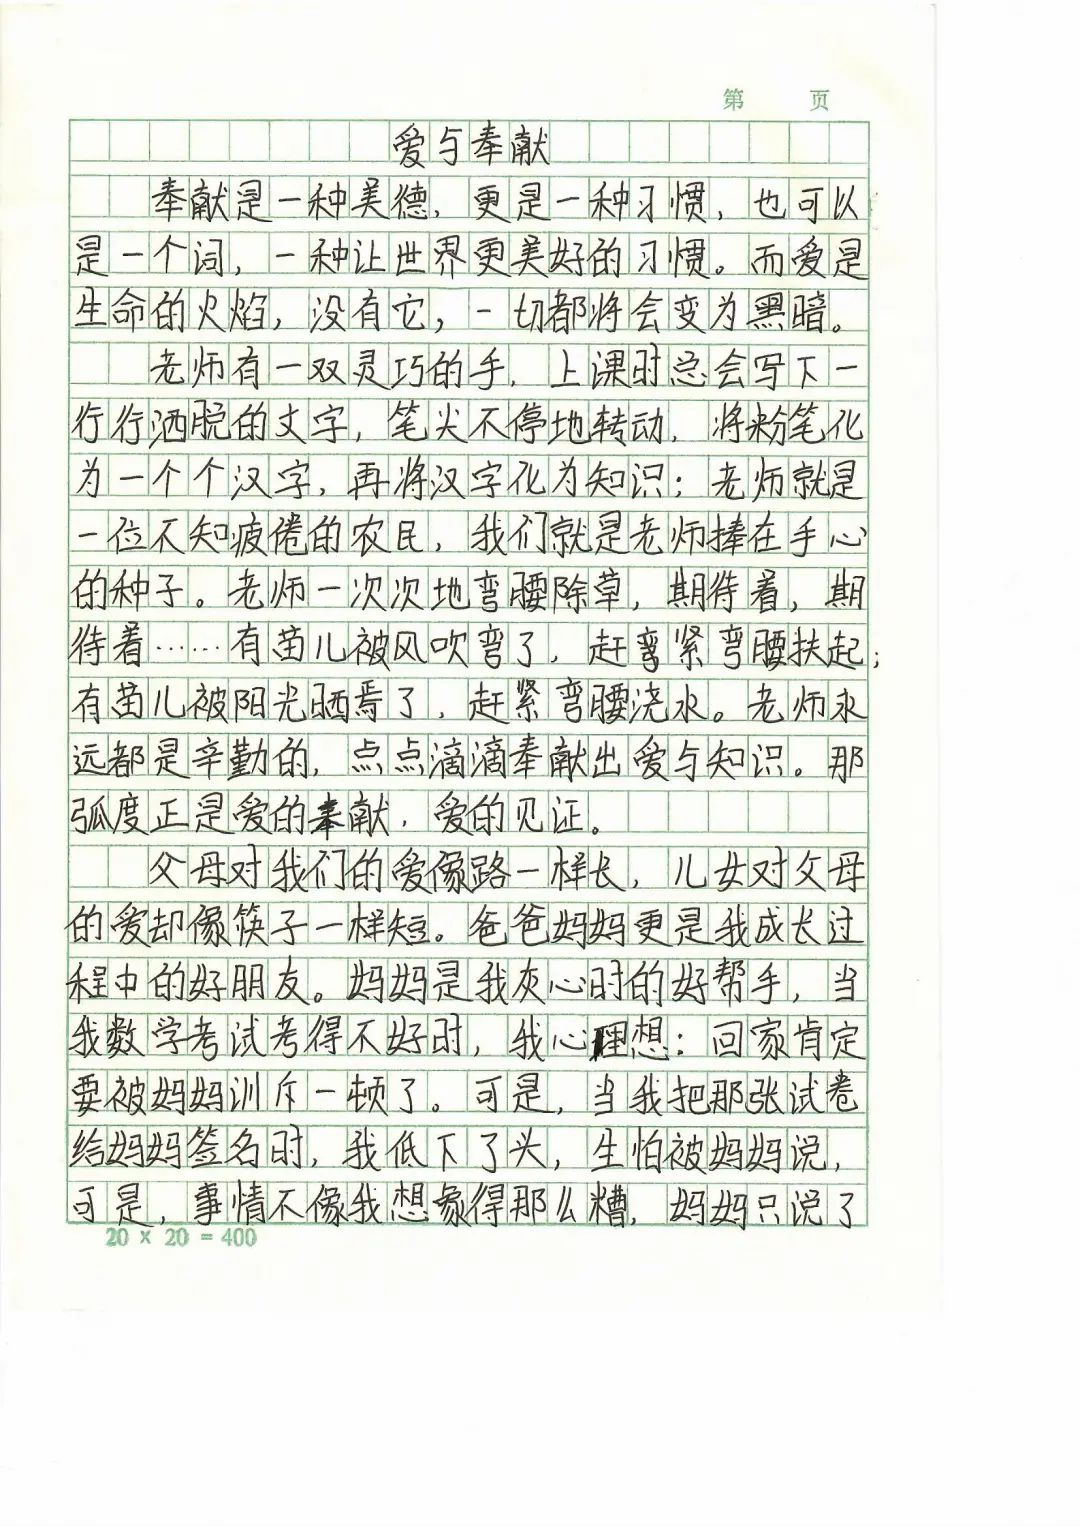 第 页
爱与奉献
奉献是一种美德，更是一种习惯，也可以
是一个词，一种让世界更美好的习惯。而爱是
生命的火焰，没有它，一切都将会变为黑暗。
老师有一双灵巧的手，上课时总会写下一
行行洒脱的文字，笔尖不停地转动，将粉笔化
为一个个汉字，再将汉字化为知识；老师就是
一位不知疲倦的农民，我们就是老师捧在手心
的种子。老师一次次地弯腰除草，期待着，期
待着……有苗儿被风吹弯了，赶弯紧弯腰扶起；
有苗儿被阳光晒焉了，赶紧弯腰浇水。老师永
远都是辛勤的，点点滴滴奉献出爱与知识。那
弧度正是爱的奉献，爱的见证。
父母对我们的爱像路一样长，儿女对父母
的爱却像筷子一样短。爸爸妈妈更是我成长过
程中的好朋友。妈妈是我灰心时的好帮手，当
我数学考试考得不好时，我心理想：回家肯定
要被妈妈训斥一顿了。可是，当我把那张试卷
给妈妈签名时，我低下了头，生怕被妈妈说，
可是，事情不像我想象得那么糟，妈妈只说了
20 × 20 = 400